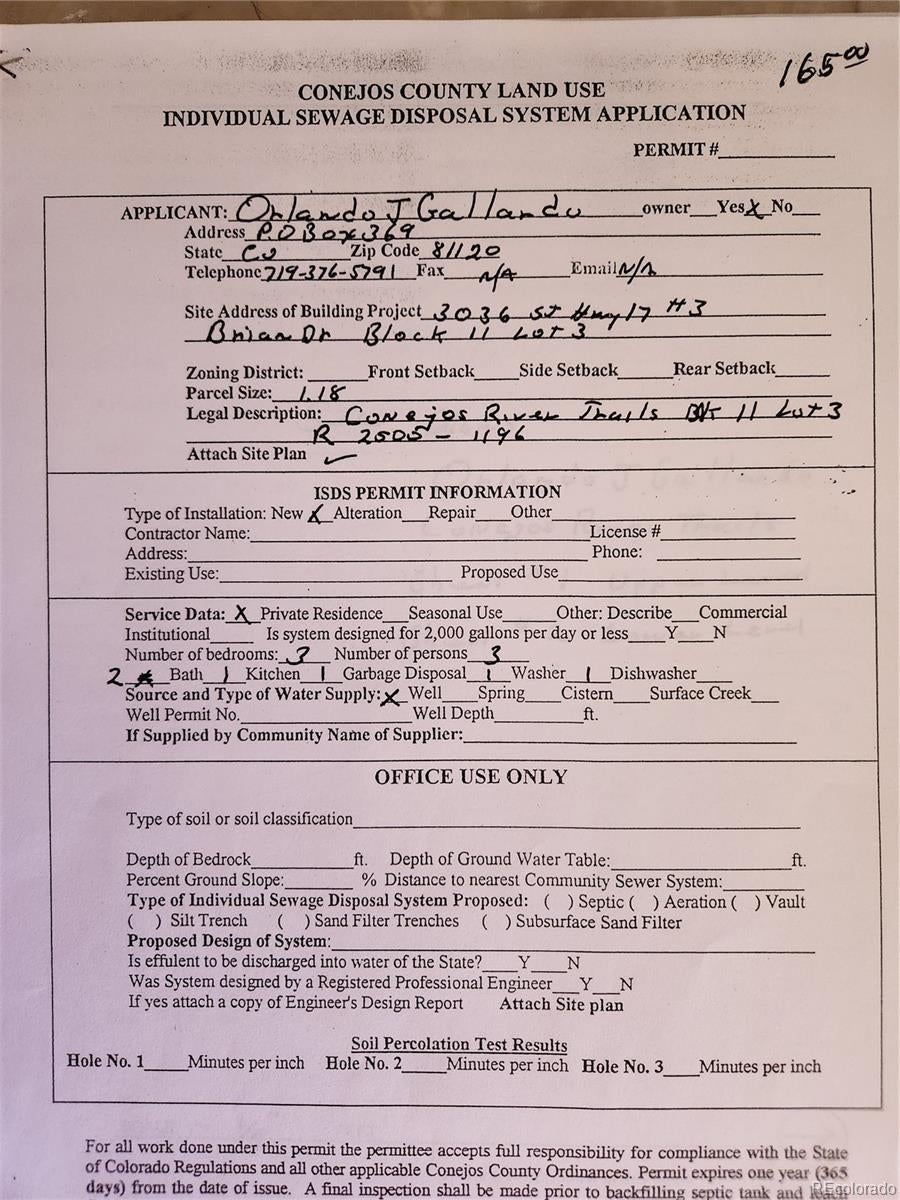 165.00
CONEJOS COUNTY LAND USE
INDIVIDUAL SEWAGE DISPOSAL SYSTEM APPLICATION
PERMIT #
APPLICANT: Orlando J Gallardo owner Yes X No
Address P.O Box 369
State CO Zip Code 81120
Telephone 719-376-5791 Fax N/A Email N/A
Site Address of Building Project 3036 St Hwy 17 #3
Brian Dr Block 11 Lot 3
Zoning District: Front Setback Side Setback Rear Setback
Parcel Size: 1.18
Legal Description: Conejos River Trails Blk 11 Lot 3
R 2505-1196
Attach Site Plan ✓
ISDS PERMIT INFORMATION
Type of Installation: New X Alteration Repair Other
Contractor Name: License #
Address: Phone:
Existing Use: Proposed Use
Service Data: X Private Residence Seasonal Use Other: Describe Commercial
Institutional Is system designed for 2,000 gallons per day or less Y N
Number of bedrooms: 3 Number of persons 3
2 Bath 1 Kitchen 1 Garbage Disposal 1 Washer 1 Dishwasher
Source and Type of Water Supply: X Well Spring Cistern Surface Creek
Well Permit No. Well Depth ft.
If Supplied by Community Name of Supplier:
OFFICE USE ONLY
Type of soil or soil classification
Depth of Bedrock ft. Depth of Ground Water Table: ft.
Percent Ground Slope: % Distance to nearest Community Sewer System:
Type of Individual Sewage Disposal System Proposed: ( ) Septic ( ) Aeration ( ) Vault
( ) Silt Trench ( ) Sand Filter Trenches ( ) Subsurface Sand Filter
Proposed Design of System:
Is effulent to be discharged into water of the State? Y N
Was System designed by a Registered Professional Engineer Y N
If yes attach a copy of Engineer's Design Report Attach Site plan
Soil Percolation Test Results
Hole No. 1 Minutes per inch Hole No. 2 Minutes per inch Hole No. 3 Minutes per inch
For all work done under this permit the permittee accepts full responsibility for compliance with the State
of Colorado Regulations and all other applicable Conejos County Ordinances. Permit expires one year (365
days) from the date of issue. A final inspection shall be made prior to backfilling septic tank and
REcolorado